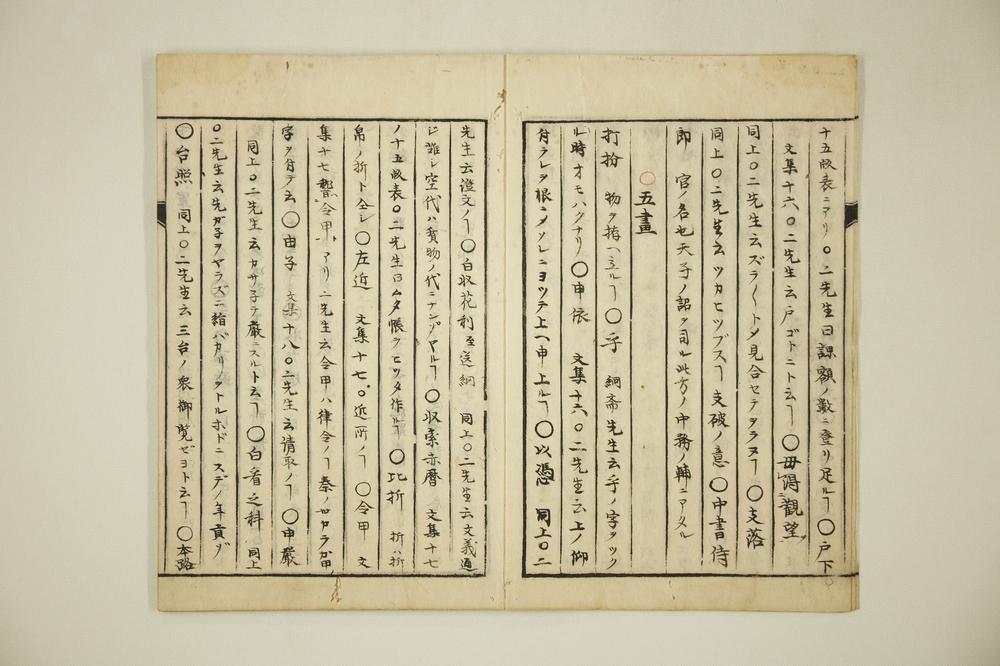 十五版表ニアリ〇二先生曰課額ノ数ニ登リ足ルヿ〇戸下
文集十六〇二先生云戸ゴトニト云ヿ〇毋得觀望
同上〇二先生云ズラ〱トメ見合セテヲラヌヿ〇支落
同上〇二先生云ツカヒツブスヿ支破ノ意〇中書侍
郎 官ノ名也天子ノ詔ヲ司ル此方ノ中務ノ輔ニアタル
〇五畫
打扮 物ヲ拵ヘ立ルヿ〇乎 絅斎先生云乎ノ字ヲツク
ル時オモハクナリ〇申依 文集十六〇二先生云上ノ仰
付ラレヲ根ニメソレニヨツテ上ヘ申上ルヿ〇以憑 同上〇二
先生云證文ノヿ〇白収花利至送納 同上〇二先生云文義通
ジ難シ空代ハ貨物ノ代ニナシヤルヿ〇収索赤暦 文集十七
ノ十五版表〇二先生曰ムタ帳ヲヒツタ作ルヿ〇比折 折ハ折
帛ノ折ト仝シ〇左近 文集十七〇近所ノヿ〇令甲 文
集十七ノ令甲アリ二先生云令甲ハ律令ノヿ秦ノ世カラカ甲
字ヲ付テ云〇由子 文集十八〇二先生云請取ノヿ〇申嚴
同上〇二先生云カサ子テ嚴ニスルト云ヿ〇白著之科 同上
〇二先生云先ガ子ヲヤラズニ給バカリノヲトルホドニスデノ年貢ゾ
〇台照 同上〇二先生云三台ノ衆御覧ゼヨト云ヿ〇本路